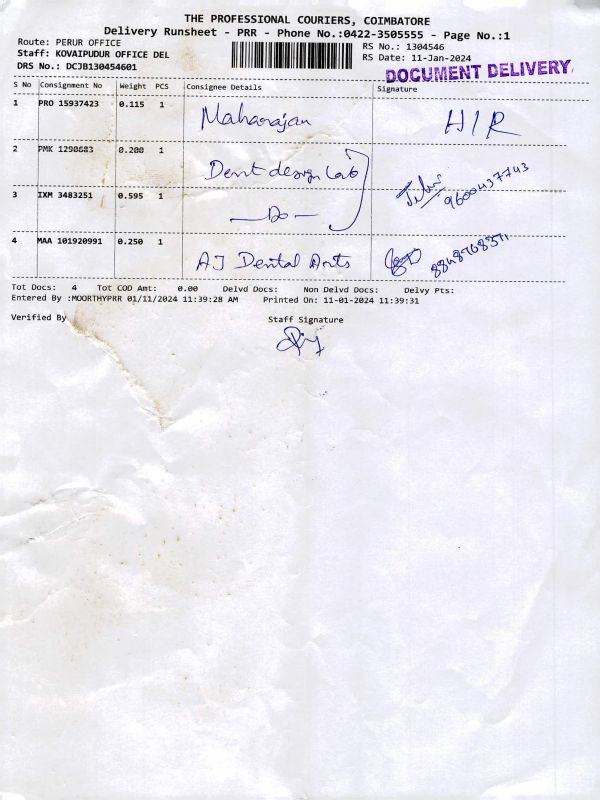 THE PROFESSIONAL COURIERS, COIMBATORE
Delivery Runsheet - PRR - Phone No.:0422-3505555 - Page No.:1
Route: PERUR OFFICE RS No.: 1304546
Staff: KOVAIPUDUR OFFICE DEL RS Date: 11-Jan-2024
DRS No.: DCJB130454601 DOCUMENT DELIVERY
S No Consignment No Weight PCS Consignee Details Signature
1 PRO 15937423 0.115 1 Maharajan H/R
2 PMK 1290683 0.200 1 Dent design Lab
3 IXM 3483251 0.595 1 —Do— 9600437743
4 MAA 101920991 0.250 1 AJ Dental Arts
Tot Docs: 4 Tot COD Amt: 0.00 Delvd Docs: Non Delvd Docs: Delvy Pts:
Entered By :MOORTHYPRR 01/11/2024 11:39:28 AM Printed On: 11-01-2024 11:39:31
Verified By Staff Signature